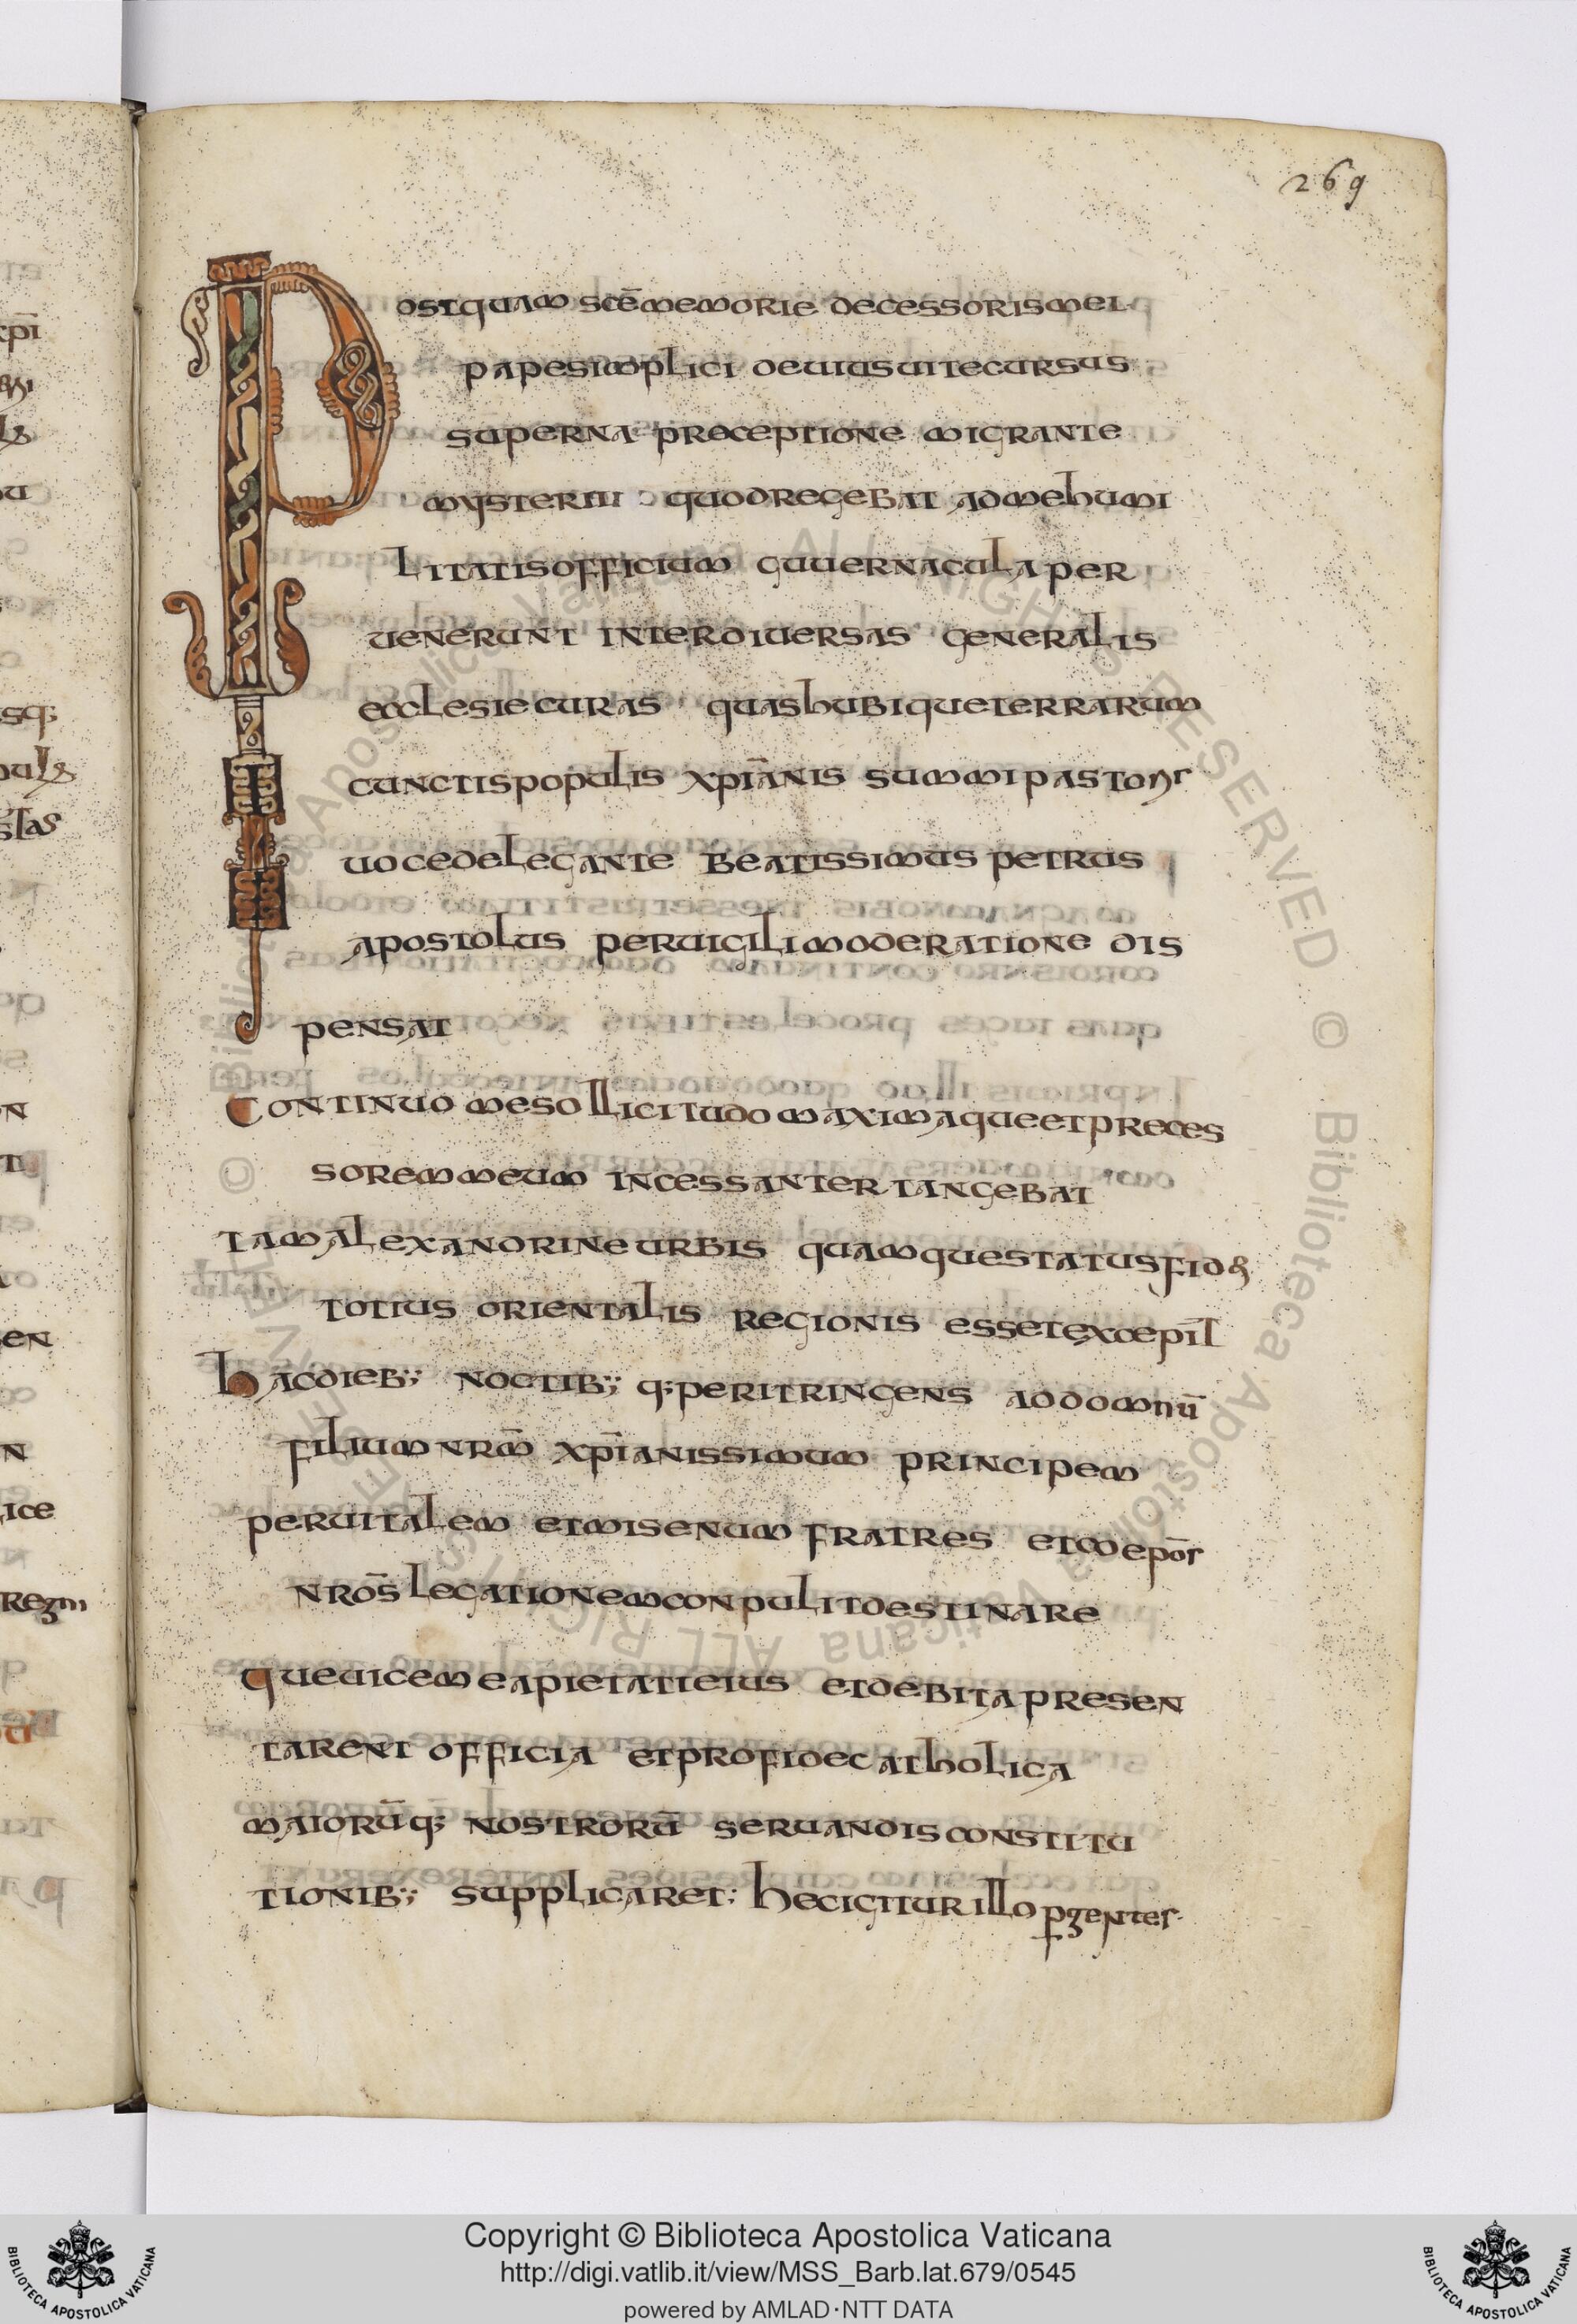 269
Postquam scē memorie decessoris mei·
pape simplici de uius uite cursus
superna preceptione migrante
mysterni quod regebat ad me humi
litatis officium guuernacula per
uenerunt inter diuersas generalis
ecclesie curas quas hubique terrarum
cunctis populis xp̄ianis summi pastoris
uoce delegante beatissimus petrus
apostolus peruigili moderatione dis
pensat
Continuo me sollicitudo maximaque et preces
sorem meum incessanter tangebat
tam alexandrine urbis quamque status fidei
totius orientalis regionis esset excepit
hac dieb; noctib; q; peritringens ad domnū
filium nrm̄ xp̄ianissimum principem
peruitalem et misenum fratres et
nros̄ legationem conpulit destinare
que uicem ea pietati eius et debita presen
tarent officia et pro fide catholica
maiorūq; nostrorū seruandis constitu
tionib; supplicaret: hec igitur illo
Copyright © Biblioteca Apostolica Vaticana
http://digi.vatlib.it/view/MSS_Barb.lat.679/0545
powered by AMLAD·NTT DATA
BIBLIOTECA APOSTOLICA VATICANA
BIBLIOTECA APOSTOLICA VATICANA